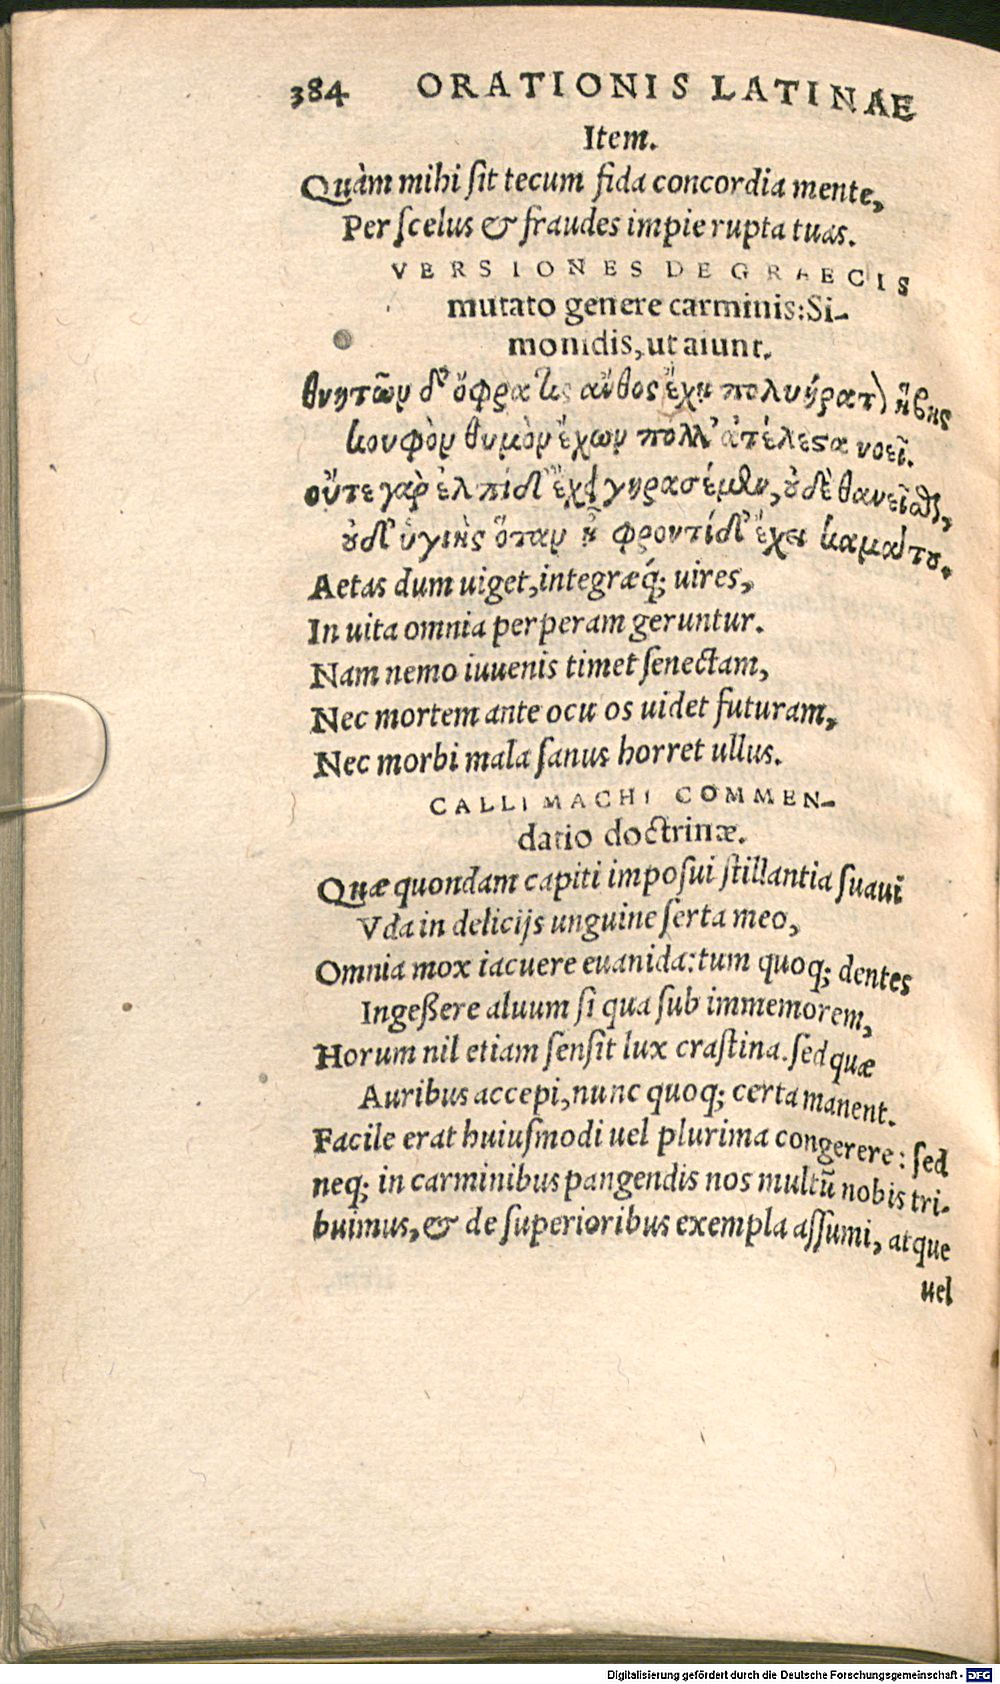 384 ORATIONIS LATINAE
Item.
Quàm mihi ſit tecum fida concordia mente,
Per ſcelus & fraudes impie rupta tuas.
VERSIONES DE GRAECIS
mutato genere carminis: Si-
monidis, ut aiunt.
θνητῶν δ' ὄφρα τις ἄνθος ἔχῃ πολυήρατον ἥβης
κουφὸν θυμὸν ἔχων πολλ' ἀτέλεστα νοεῖ.
οὔτε γὰρ ἐλπίδ' ἔχει γηρασέμεν, οὐδὲ θανεῖσθαι,
οὐδ' ὑγιὴς ὅταν ᾖ φροντίδ' ἔχει καμάτου.
Aetas dum uiget, integræq́; uires,
In uita omnia perperam geruntur.
Nam nemo iuuenis timet ſenectam,
Nec mortem ante ocu os uidet futuram,
Nec morbi mala ſanus horret ullus.
CALLIMACHI COMMEN-
datio doctrinæ.
Quæ quondam capiti impoſui ſtillantia ſuaui
Vda in delicijs unguine ſerta meo,
Omnia mox iacuere euanida: tum quoq; dentes
Ingeßere aluum ſi qua ſub immemorem,
Horum nil etiam ſenſit lux craſtina. ſed quæ
Auribus accepi, nunc quoq; certa manent.
Facile erat huiuſmodi uel plurima congerere: ſed
neq; in carminibus pangendis nos multũ nobis tri-
buimus, & de ſuperioribus exempla aſſumi, atque
uel
Digitalisierung gefördert durch die Deutsche Forschungsgemeinschaft - DFG